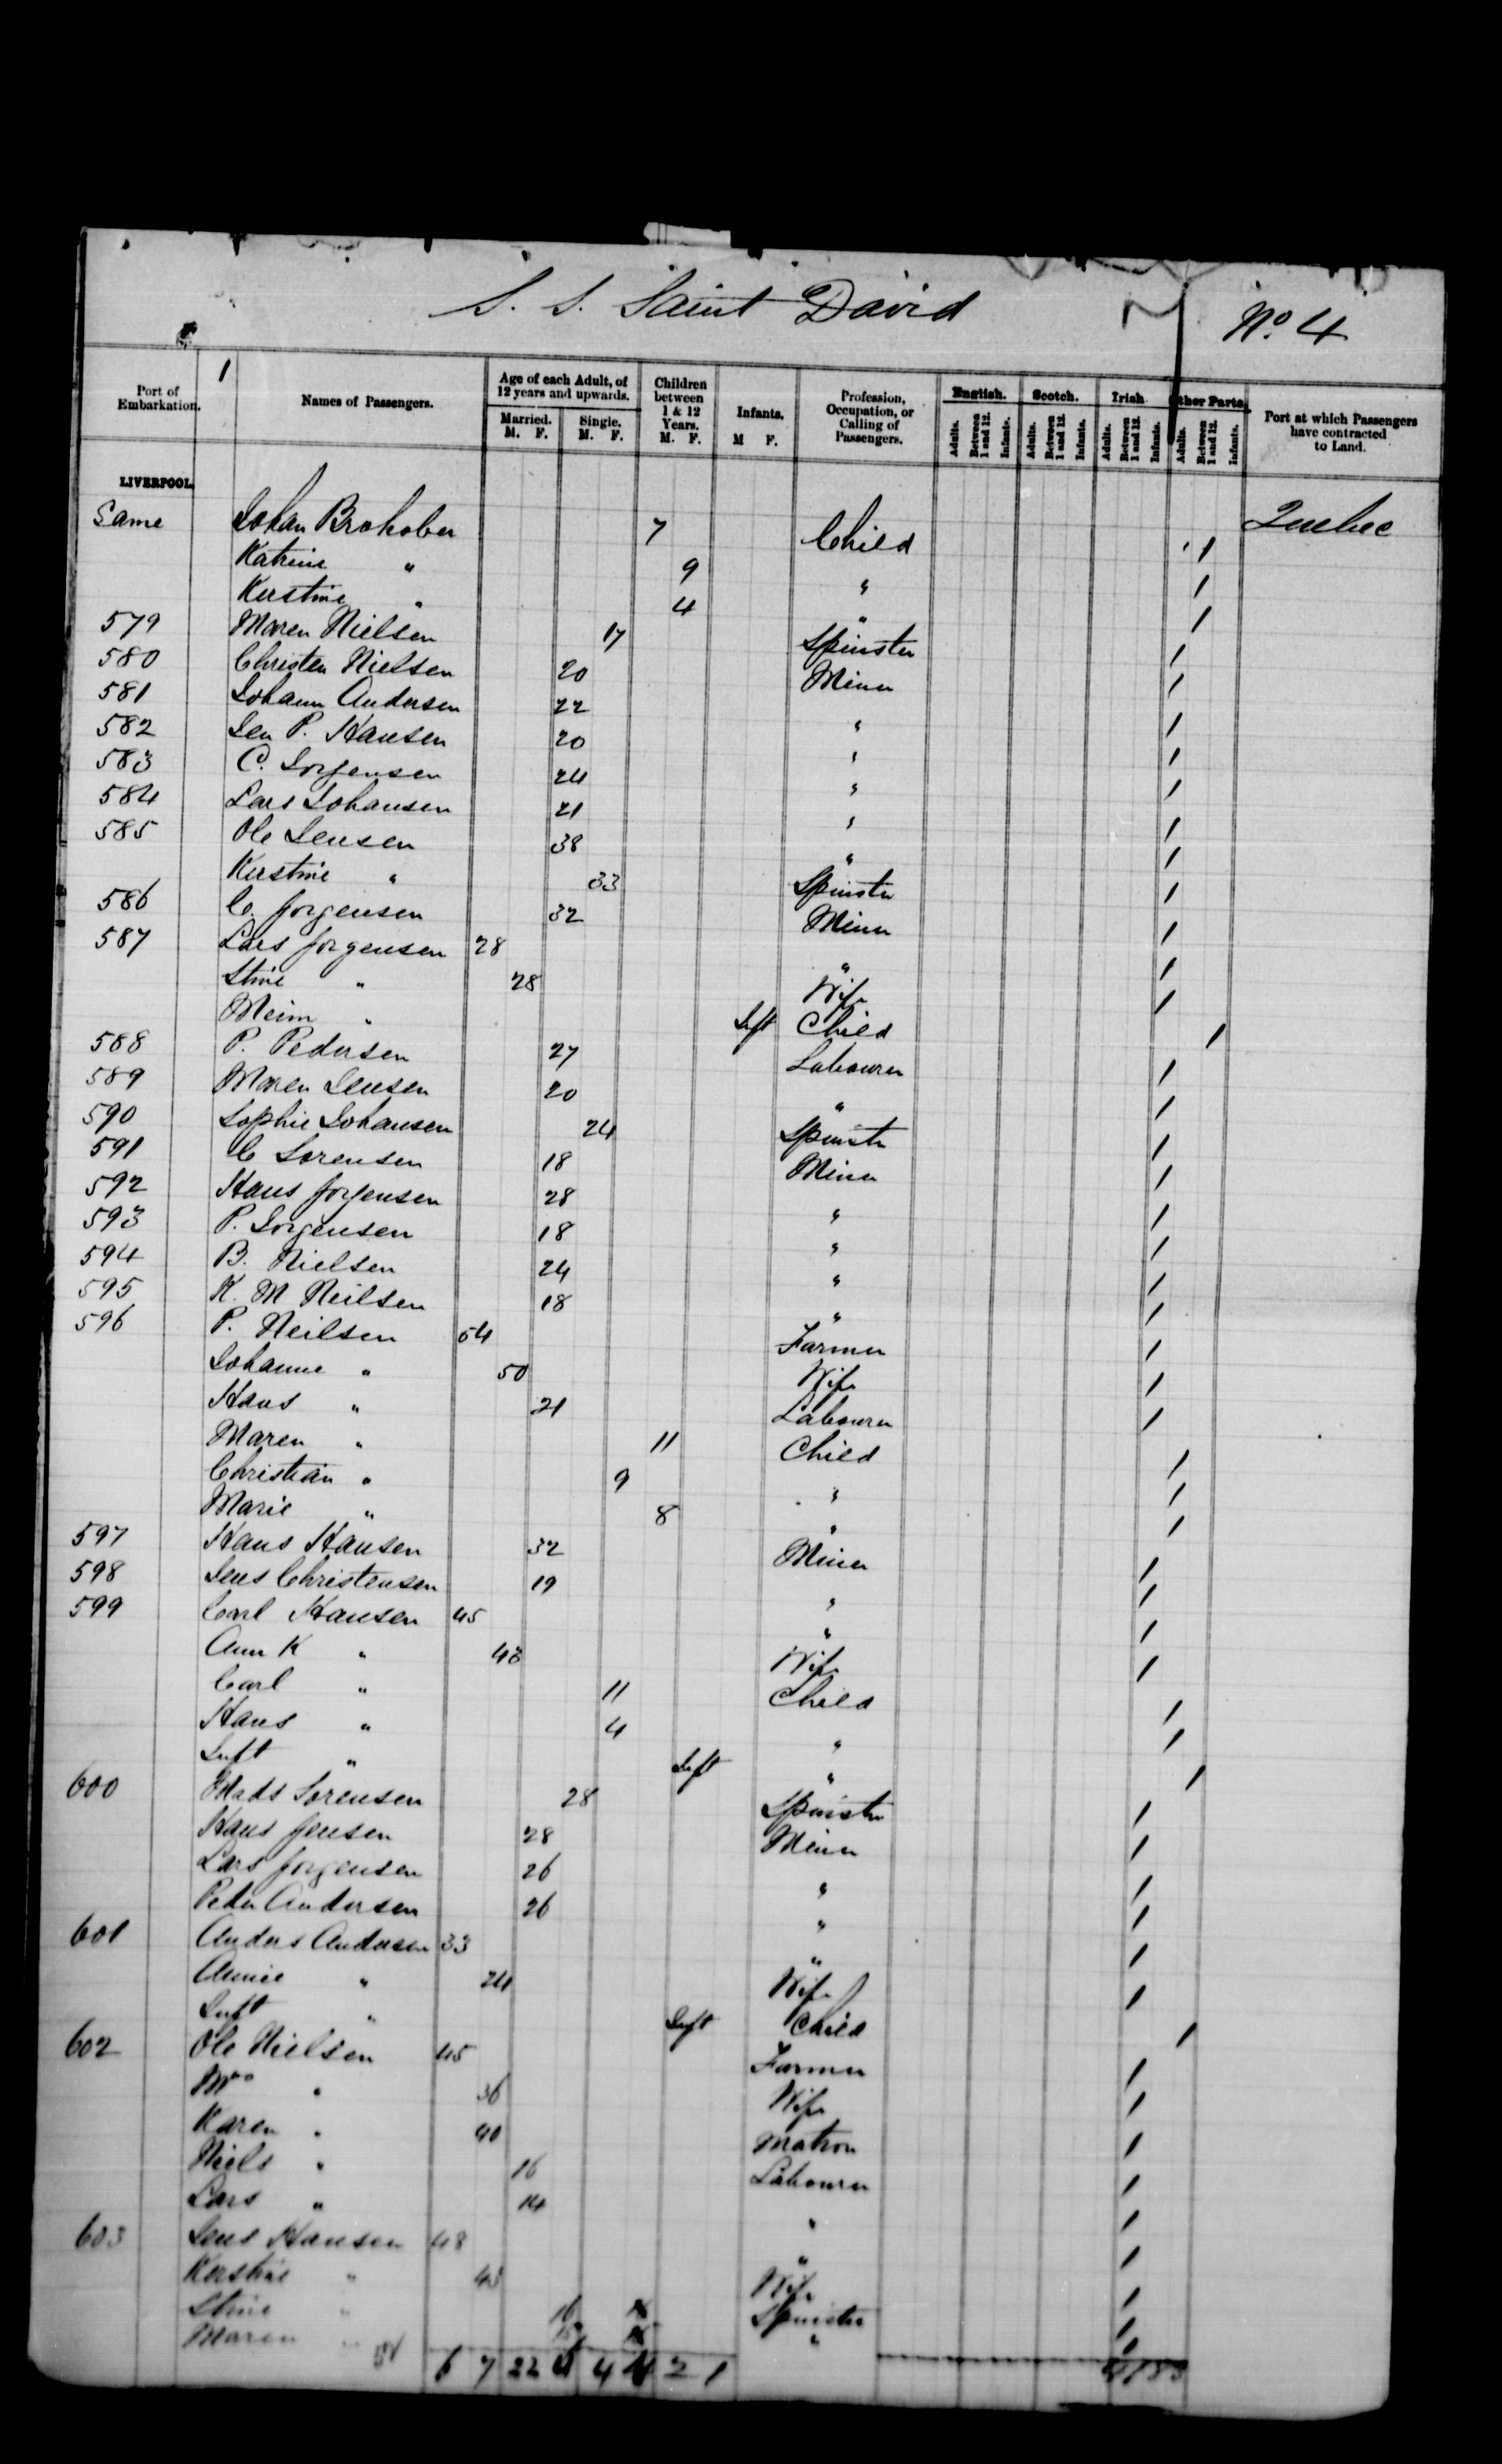 S. S. Saint David
No. 4
1
Port of Embarkation.
Names of Passengers.
Age of each Adult, of 12 years and upwards.
Married. M. F.
Single. M. F.
Children between 1 & 12 Years. M. F.
Infants. M F.
Profession, Occupation, or Calling of Passengers.
English. Adults. Between 1 and 12. Infants.
Scotch. Adults. Between 1 and 12. Infants.
Irish Adults. Between 1 and 12. Infants.
Other Parts. Adults. Between 1 and 12. Infants.
Port at which Passengers have contracted to Land.
LIVERPOOL.
Same Johan Brohober 7 Child 1 Quebec
Katrine " 9 " 1
Kerstine " 4 " 1
579 Maren Nielsen 17 Spinster 1
580 Christen Nielsen 20 Miner 1
581 Johann Andersen 22 " 1
582 Jen P. Hansen 20 " 1
583 C. Jorgensen 24 " 1
584 Lars Johansen 21 " 1
585 Ole Jensen 38 " 1
Kerstine " 33 Spinster 1
586 C. Jorgensen 32 Miner 1
587 Lars Jorgensen 28 " 1
Stine " 28 Wife 1
" Inft Child 1
588 P. Pedersen 27 Labourer 1
589 Maren Jensen 20 " 1
590 Sophie Johansen 24 Spinster 1
591 C Sorensen 18 Miner 1
592 Hans Jorgensen 28 " 1
593 P. Jorgensen 18 " 1
594 B. Nielsen 24 " 1
595 K. M Neilsen 18 " 1
596 P. Neilsen 54 Farmer 1
Johanne " 50 Wife 1
Hans " 21 Labourer 1
Maren " 11 Child 1
Christian " 9 " 1
Marie " 8 " 1
597 Hans Hansen 32 Miner 1
598 Jens Christensen 19 " 1
599 Carl Hansen 45 " 1
Ann K " 43 Wife 1
Carl " 11 Child 1
Hans " 4 " 1
Inft " Inft " 1
600 Mads Sorensen 28 Spinster 1
Hans Jensen 28 Miner 1
Lars Jorgensen 26 " 1
Peder Andersen 26 " 1
601 Anders Andersen 33 " 1
Annie " 24 Wife 1
Inft " Inft Child 1
602 Ole Nielsen 45 Farmer 1
Mrs " 36 Wife 1
Karen " 40 Matron 1
Niels " 16 Labourer 1
Lars " 14 " 1
603 Jens Hansen 48 " 1
Kerstine " Wife 1
Stine " 16 Spinster 1
Maren " " 1
6 7 22 4 2 1